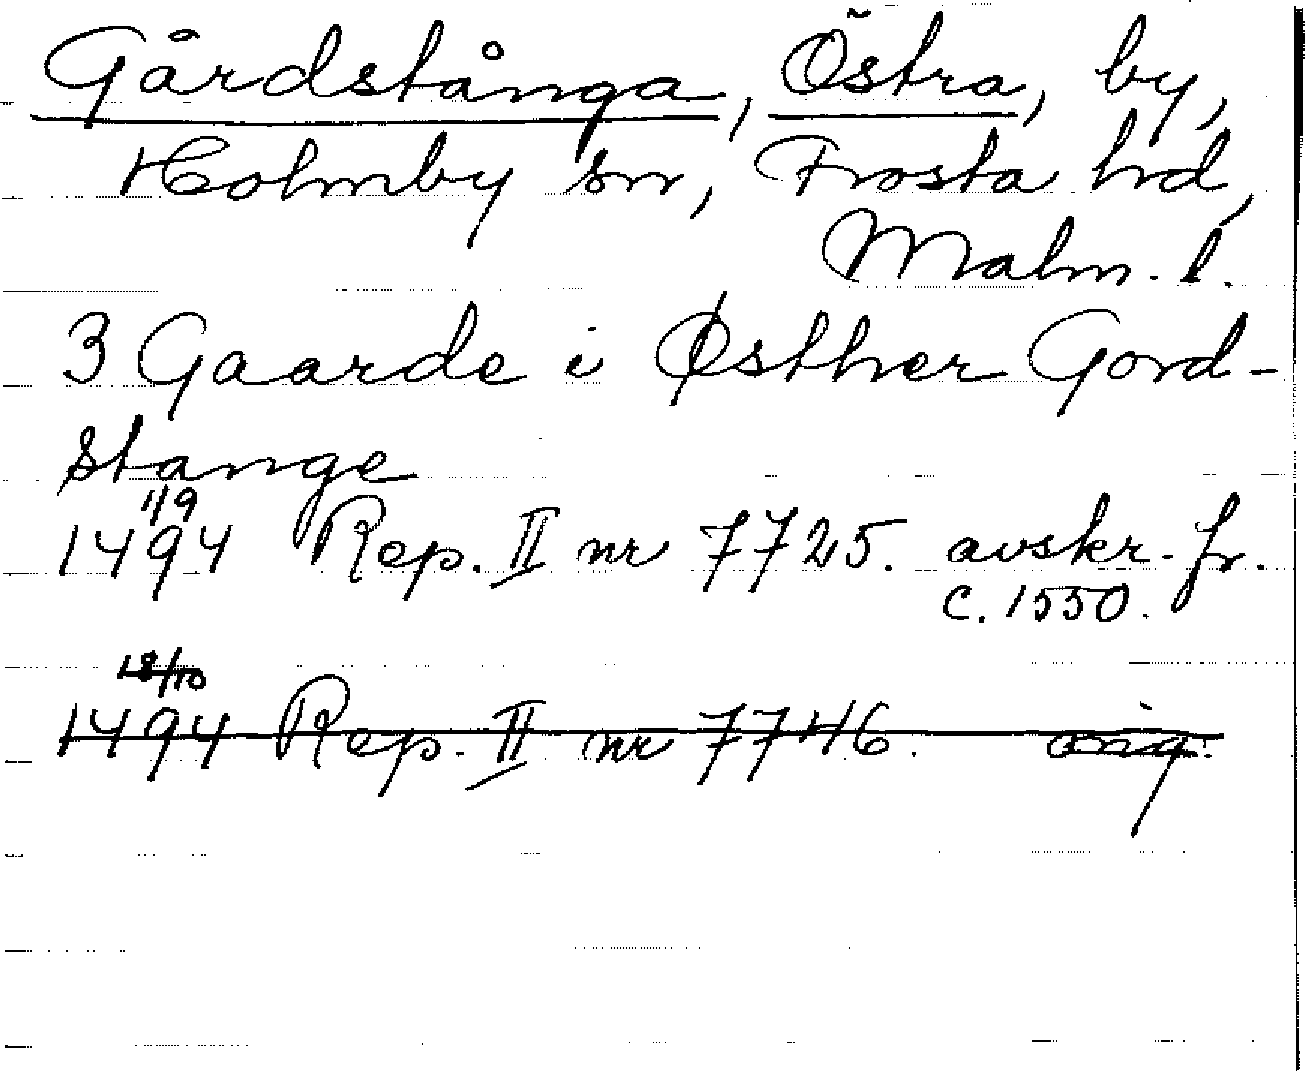 Gårdstånga, Östra, by,
Holmby sn, Frosta hd,
Malm. l.
3 Gaarde i Østher Gord-
stange
1/9
1494 Rep. II nr 7725. avskr. fr.
c. 1550.
18/10
1494 Rep. II nr 7746. orig.